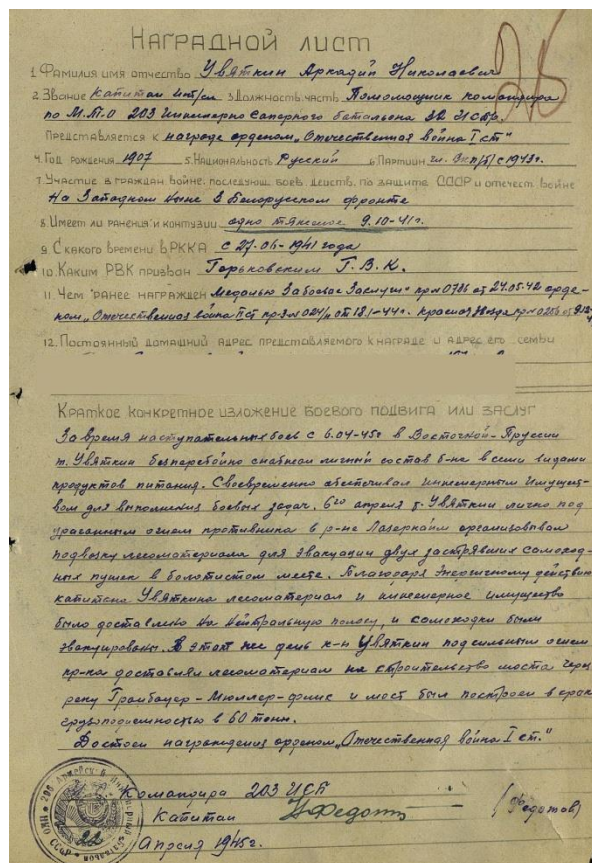 Наградной лист
1. Фамилия имя отчество Увяткин Аркадий Николаевич
2. Звание капитан инт/сл 3. Должность, часть Помощник командира
по М.Т.О 203 Инженерно Саперного батальона 32 ИСбр.
Представляется к награде орденом „Отечественная война I ст"
4. Год рождения 1907 5. Национальность Русский 6. Партийн. чл. Вкп/б/ с 1943г.
7. Участие в граждан войне, последующ боев действ. по защите СССР и отечест войне
На Западном ныне 3 Белорусском фронте
8. Имеет ли ранения и контузии одно тяжелое 9.10-41г.
9. С какого времени в РККА с 27.06-1941 года
10. Каким РВК призван Горьковским Г.В.К.
11. Чем ранее награжден Медалью За боевые Заслуги" пр № 0786 от 24.05.42 орде-
ном „Отечественная война II ст от 18.1-44г. Красная Звезда
12. Постоянный домашний адрес представляемого к награде и адрес его семьи
Краткое конкретное изложение боевого подвига или заслуг
За время наступательных боев с 6.04-45г в Восточной-Пруссии
т. Увяткин безперебойно снабжал личный состав б-на всеми видами
продуктов питания. Своевременно обеспечивал инженерным имущест-
вом для выполнения боевых задач. 6го апреля т. Увяткин лично под
ураганным огнем противника в р-не Лазеркайм организовывал
подвозку лесоматериала для эвакуации двух застрявших самоход-
ных пушек в болотистом месте. Благодаря энергичному действию
капитана Увяткина лесоматериал и инженерное имущество
было доставлено на нейтральную полосу, и самоходки были
эвакуированы. В этот же день к-н Увяткин под сильным огнем
пр-ка доставлял лесоматериал на строительство моста через
рекуГрайбауер-Мюллер-флис и мост был построен в срок
грузоподъемностью в 60 тонн.
Достоин награждения орденом „Отечественная война I ст."
Командира 203 ИСБ
Капитан Федотов (Федотов)
22 Апреля 1945г.